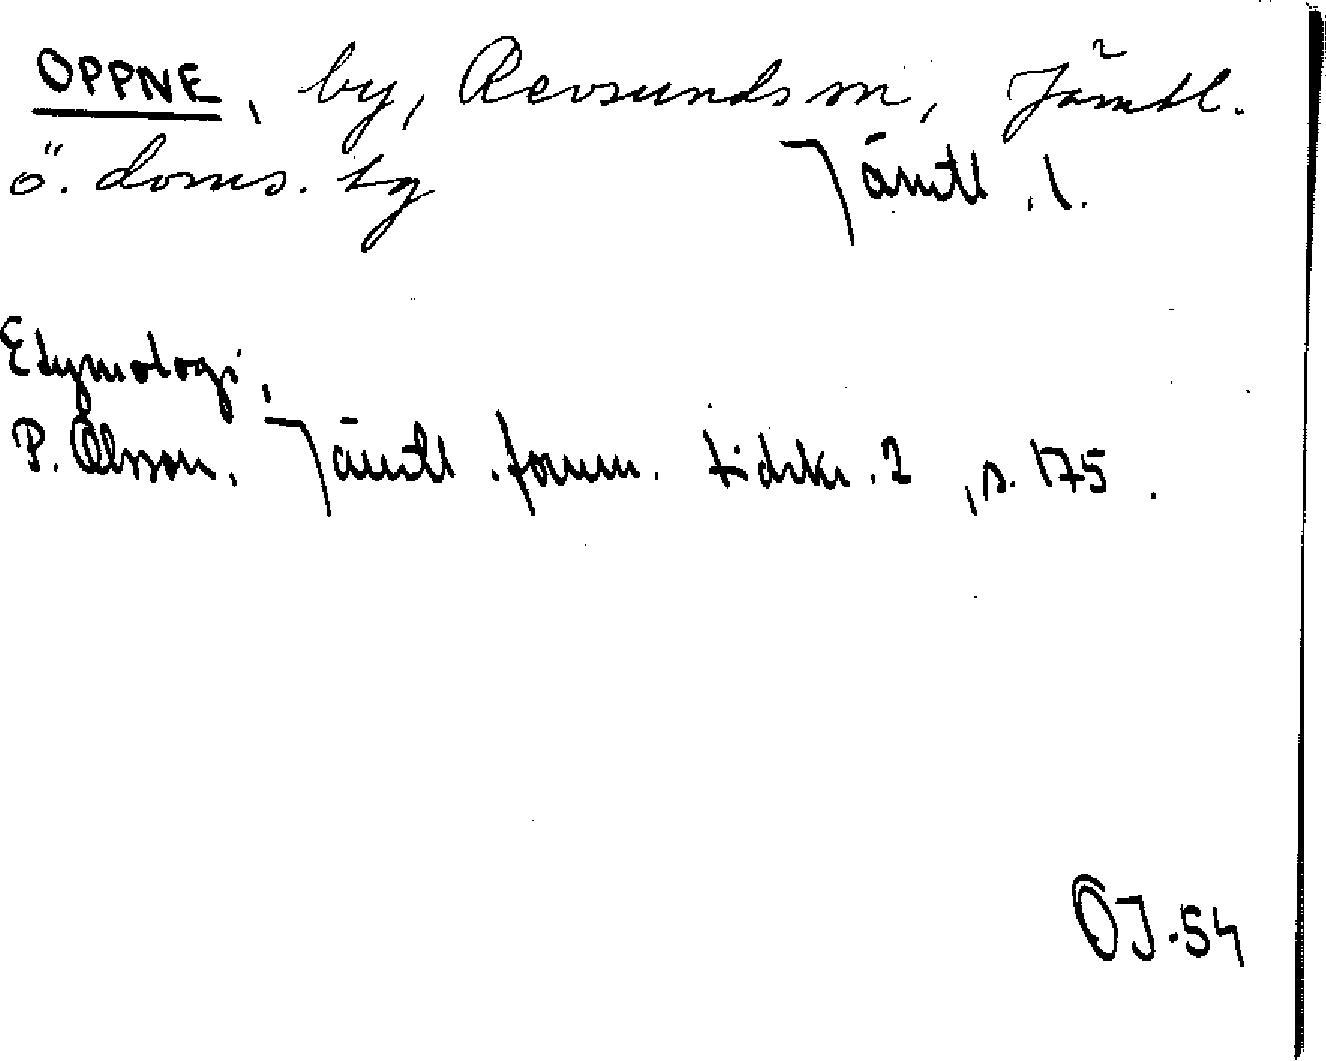 OPPNE, by, Revsunds sn, Jämtl.
ö. doms. tg Jämtl. l.
Etymologi,
P. Olsson, Jämtl. fornm. tidskr. 2, s. 175.
OJ-54